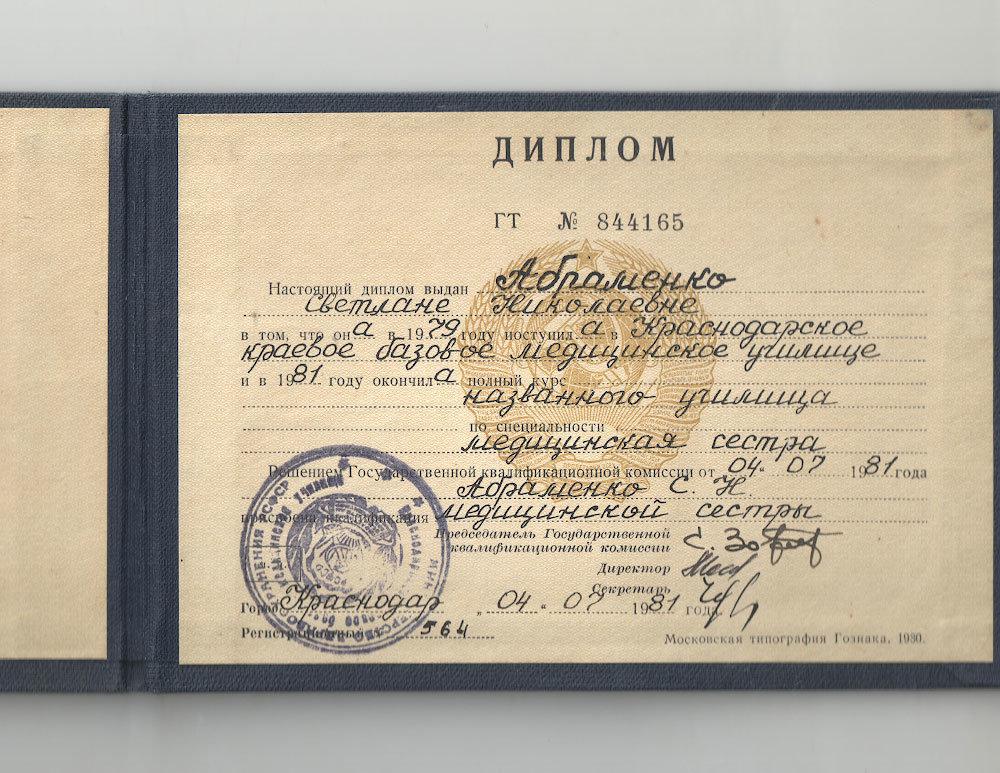 ДИПЛОМ
ГТ № 844165
Настоящий диплом выдан Абраменко
Светлане Николаевне
в том, что она в 1979 году поступила в Краснодарское
краевое базовое медицинское училище
и в 1981 году окончила полный курс
названного училища
по специальности
медицинская сестра
Решением Государственной квалификационной комиссии от 04 07 1981 года
Абраменко С. Н.
присвоена квалификация медицинской сестры
Председатель Государственной
квалификационной комиссии
Директор
Секретарь
Город Краснодар „ 04 “ 07 1981 года.
Регистрационный № 564
Московская типография Гознака, 1980.